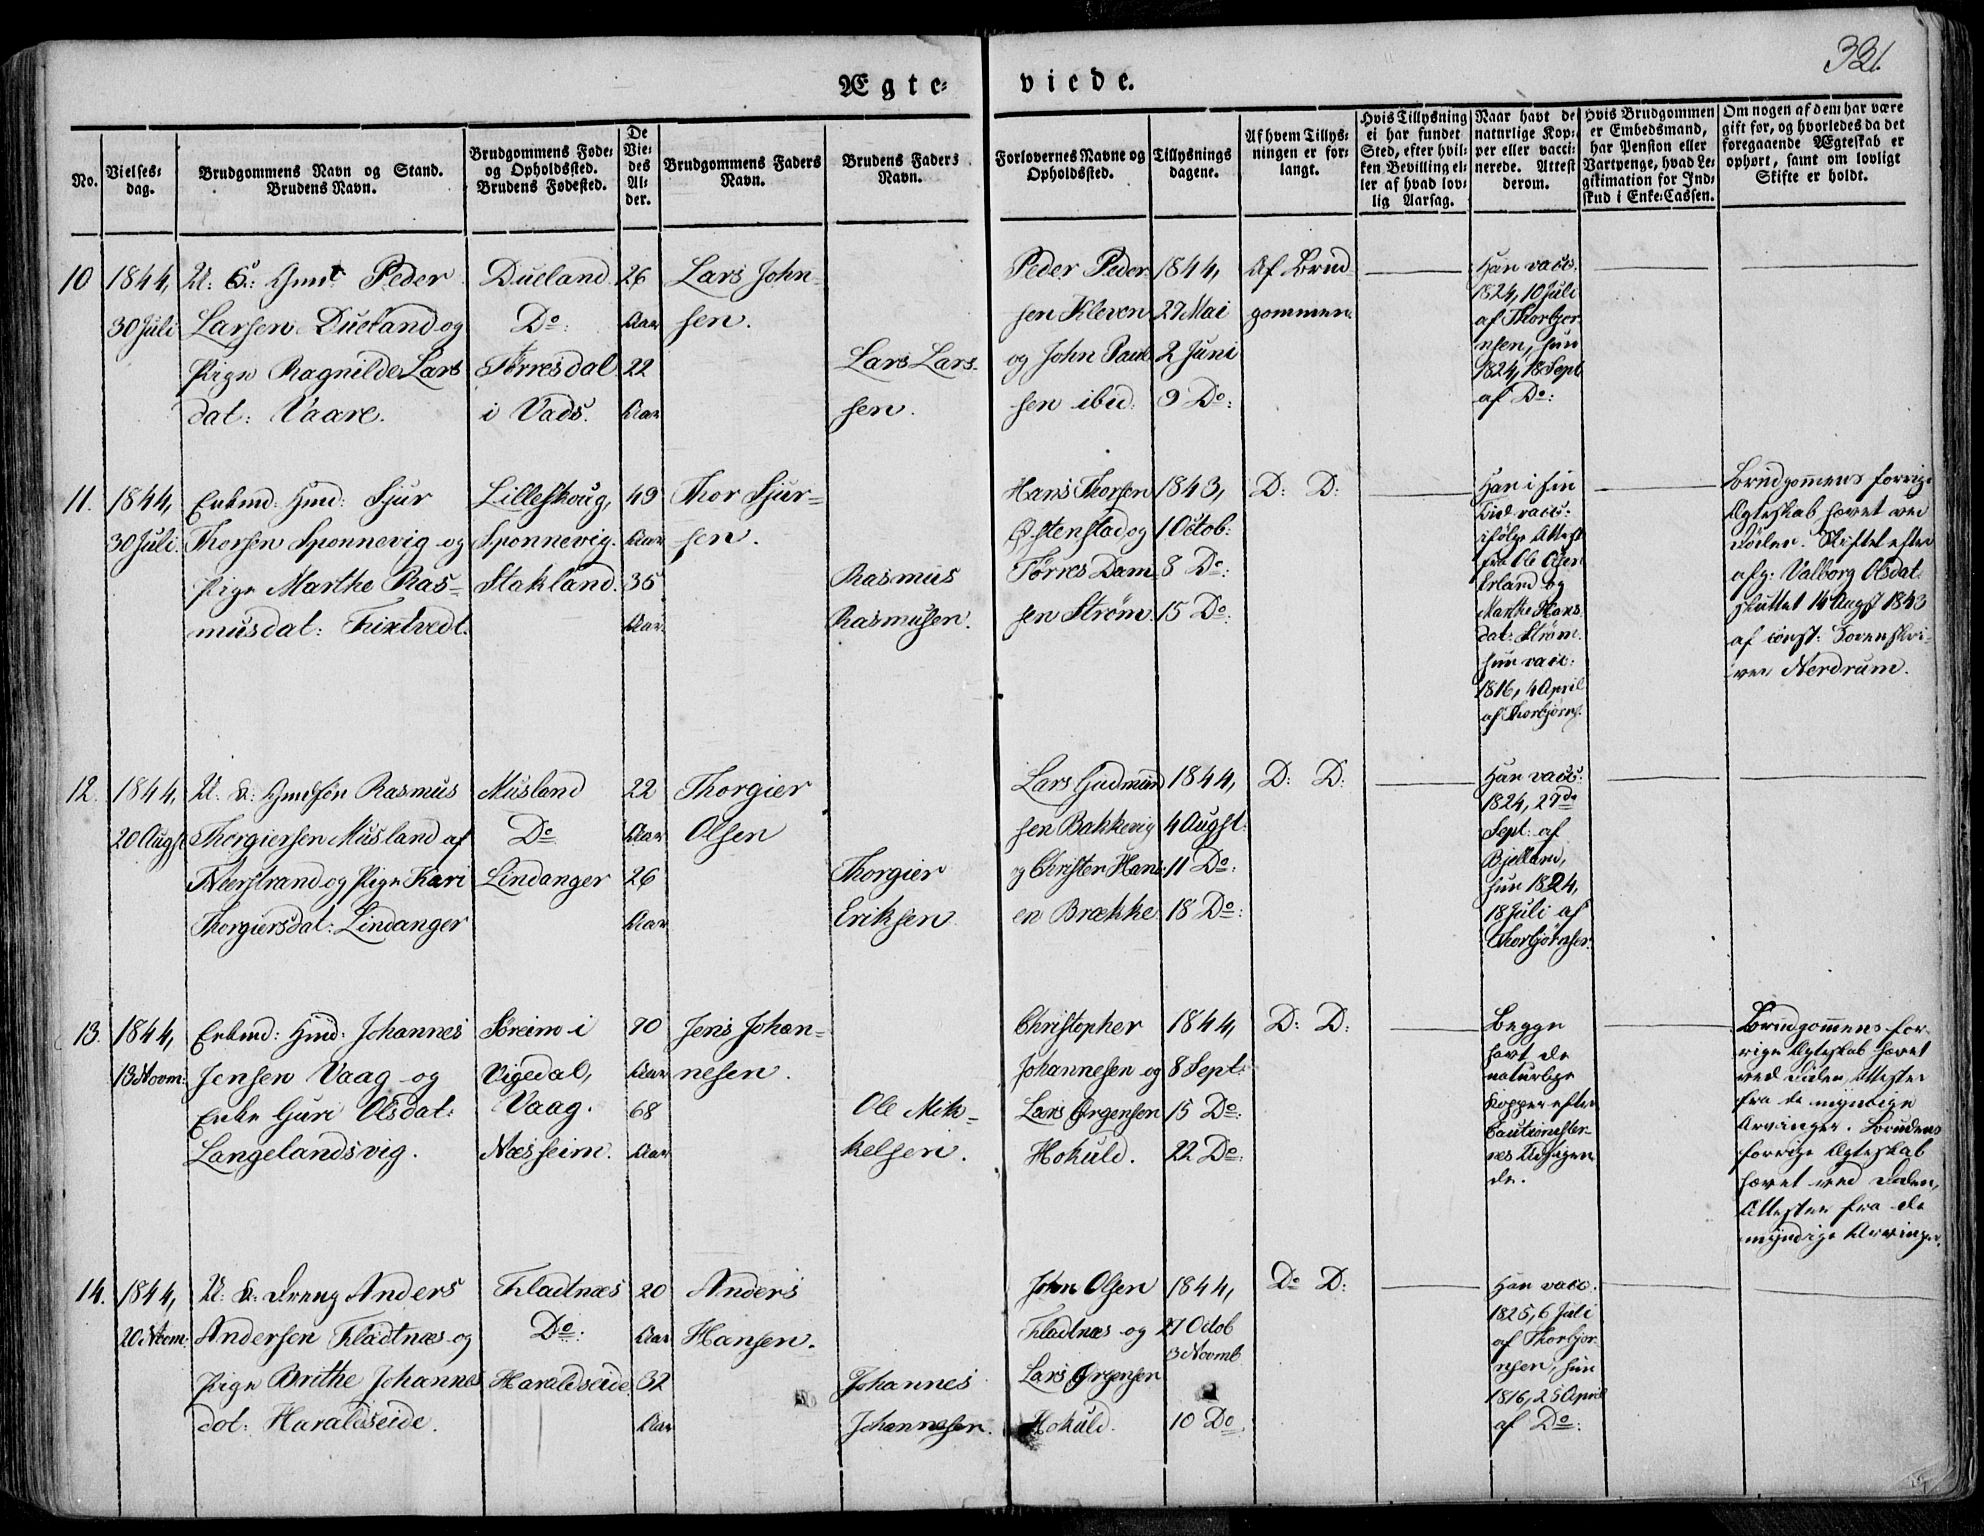 331.
Ægte- viede.
No.
Vielses-
dag.
Brudgommens Navn og Stand.
Brudens Navn.
Brudgommens Føde-
og Opholdssted.
Brudens Fødested.
De
Vie-
des
Al-
der.
Brudgommens Faders
Navn.
Brudens Faders
Navn.
Forlovernes Navne og
Opholdssted.
Tillysnings
dagene.
Af hvem Tillys-
ningen er for-
langt.
Hvis Tillysning
ei har fundet
Sted, efter hvil-
ken Bevilling el-
ler af hvad lov-
lig Aarsag.
Naar havt de
naturlige Kop-
per eller vacci-
nerede. Attest
derom.
Hvis Brudgommen
er Embedsmand,
har Pension eller
Vartpenge, hvad Le-
gitimation for Ind-
skud i Enke-Cassen.
Om nogen af dem har være
gift før, og hvorledes da det
foregaaende Ægteskab er
ophørt, samt om lovligt
Skifte er holdt.
10
1844,
30 Juli
Peder
Larsen Dueland og
Pige Ragnilde Lars
dat: Vaare.
Dueland
Do:
Tørresdal
i Vads.
26
Aar
22
Aar
Lars John-
sen.
Lars Lars-
sen.
Peder Peder-
sen Kleven
og John Paul-
sen ibid:
1844,
27 Mai
2 Juni
9 Do:
Af Brud
gommen
Han vacc:
1824, 10 Juli
af Thorbjør
nsen, hun
1824, 18 Sept
af Do:
11.
1844,
30 Juli.
Enkmd: Gmd: Sjur
Thorsen Sponnevig og
Pige Marthe Ras-
musdat:
Lilleskoug,
Sponnevig.
Stakland.
49
Aar
35
Aar
Thor Sjur-
sen.
Rasmus
Rasmussen.
Hans Thorsen
Østenstad og
Tørres Dam-
sen Strøm.
1843,
1 Octob:
8 Do:
15 Do:
D: D:
Han i sin
Tid vacc:
ifølge Attest
fra Ole Olsen
Erland og
Marthe Hans
dat: Strøm.
hun vacc:
1816, 4 April
af Thorbjørns.
Brudgommens forrige
Ægteskab hævet ved
Døden. Skiftet efter
afg: Valborg Olsdat:
sluttet 14 Augst 1843
af const: Sorenskri-
ver Nerdrum.
12.
1844,
20 Augst
U: K: Gmdsøn Rasmus
Thorgiersen Musland af
Nerstrand og Pige Kari
Thorgiersdat: Lindanger
Musland
Do
Lindanger
22
Aar
26
Aar
Thorgier
Olsen
Thorgier
Eriksen
Lars Gudmund
sen Bakkevig
og Christen Hans-
en Brække
1844,
4 Augst:
11 Do:
18 Do:
D: D:
Han vacc:
1824, 27de
Sept: af
Bjelland,
hun 1824,
18 Juli af
Thorbjørnsen.
13.
1844,
13 Novm:
Enkmd: Gmd: Johannes
Jensen Vaag og
Enke Guri Olsdat:
Langelandsvig.
Søreim i
Vigedal,
Vaag.
Næsheim.
70
Aar
68
Aar
Jens Johan-
nesen.
Ole Mik-
kelsen.
Christopher
Johannesen og
Lars Ørgensen
Hokuld.
1844,
8 Sept:
15 Do:
22 Do:
D: D:
Begge
havt de
naturlige
Kopper efter
Cautionister-
nes Udsigen-
de.
Brudgommens for-
rige Ægteskab hævet
ved Døden, Attester
fra de myndige
Arvinger. Brudens
forrige Ægteskab
hævet ved Døden,
Attester fra de
myndige Arvinger.
14.
1844,
20 Novm:
U: K: Dreng Anders
Andersen Fladtnæs og
Pige Brithe Johannes
dat: Haraldseide.
Fladtnæs
Do:
Haraldseide
20
Aar
32
Aar
Anders
Hansen.
Johannes
Johannesen.
John Olsen
Fladtnæs og
Lars Ørgensen
Hokuld.
1844,
27 Octob
3 Novmb
10 Do.
Do D:
Han vacc.
1825, 6 Juli
af Thorbjør
nsen, hun
1816, 25 April
af Do: